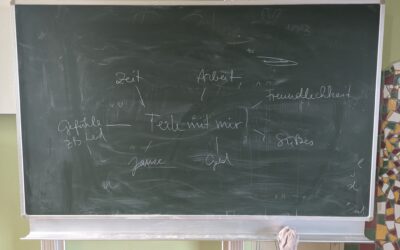 Zeit
Arbeit
Freundlichkeit
Gefühle
zB Leid
Teile mit mir
Süßes
Jause
Geld